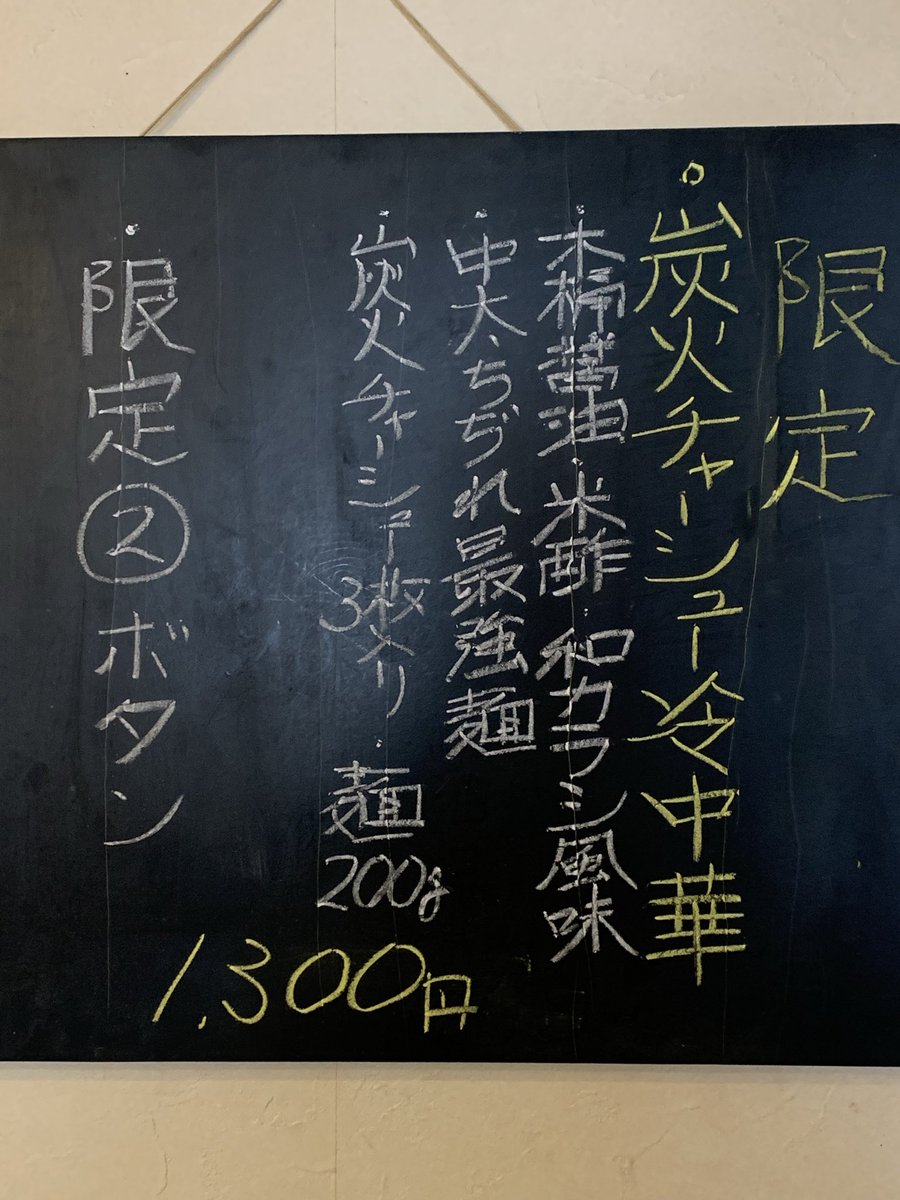 限定
。炭火チャーシュー冷中華
・木桶醤油・米酢・和カラシ風味
・中太・ちぢれ最強麺
・炭火チャーシュー3枚入り・麺200g
1,300円
・限定②ボタン